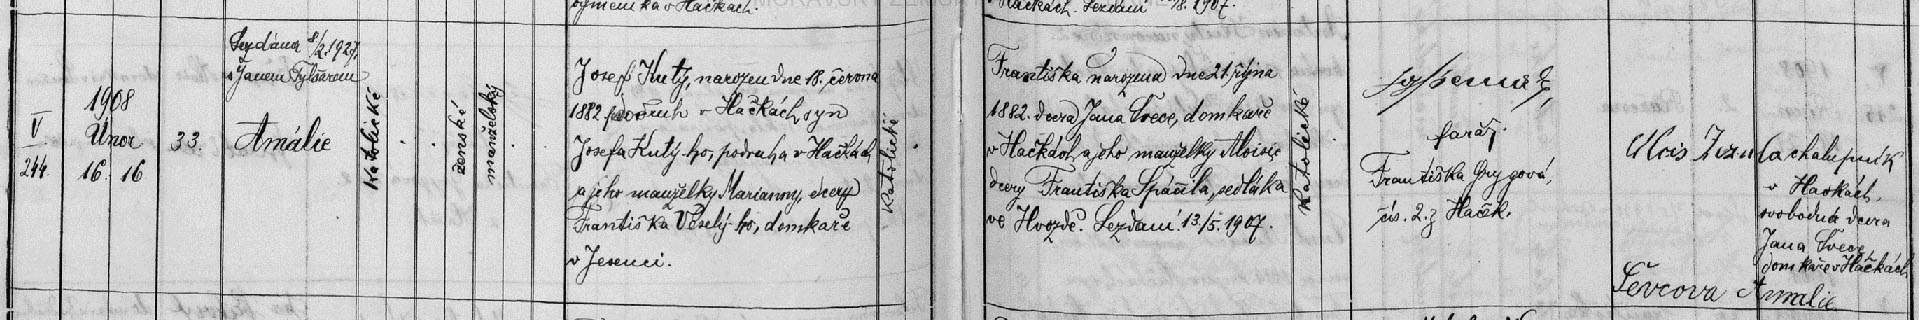 v Hačkách.
Hačkách. Sezdáni 1907.
V
244
1908
Únor
16. 16
33.
Sezdána 8/2 1927.
s Janem
Amálie
Katolické
ženské
manželský
Josef Kutý, narozen dne 18. června
1882 v Hačkách, syn
Josefa Kutý-ho, podruha v Hačkách
a jeho manželky Marianny, dcery
Františka Veselý-ho, domkaře
v Jesenci.
Katolické
Františka narozena dne 21. října
1882. dcera Jana Švece, domkaře
v Hačkách, a jeho manželky Aloisie
dcery Františka Spáčila, sedláka
ve Hvozdě. Sezdáni 13./5. 1907.
Katolické
farář.
Františka Grygová,
čís. 2. z Haček.
Alois
chalupník
v Hačkách.
svobodná dcera
Jana Švece
domkaře v Hačkách
Ševcova Amalie